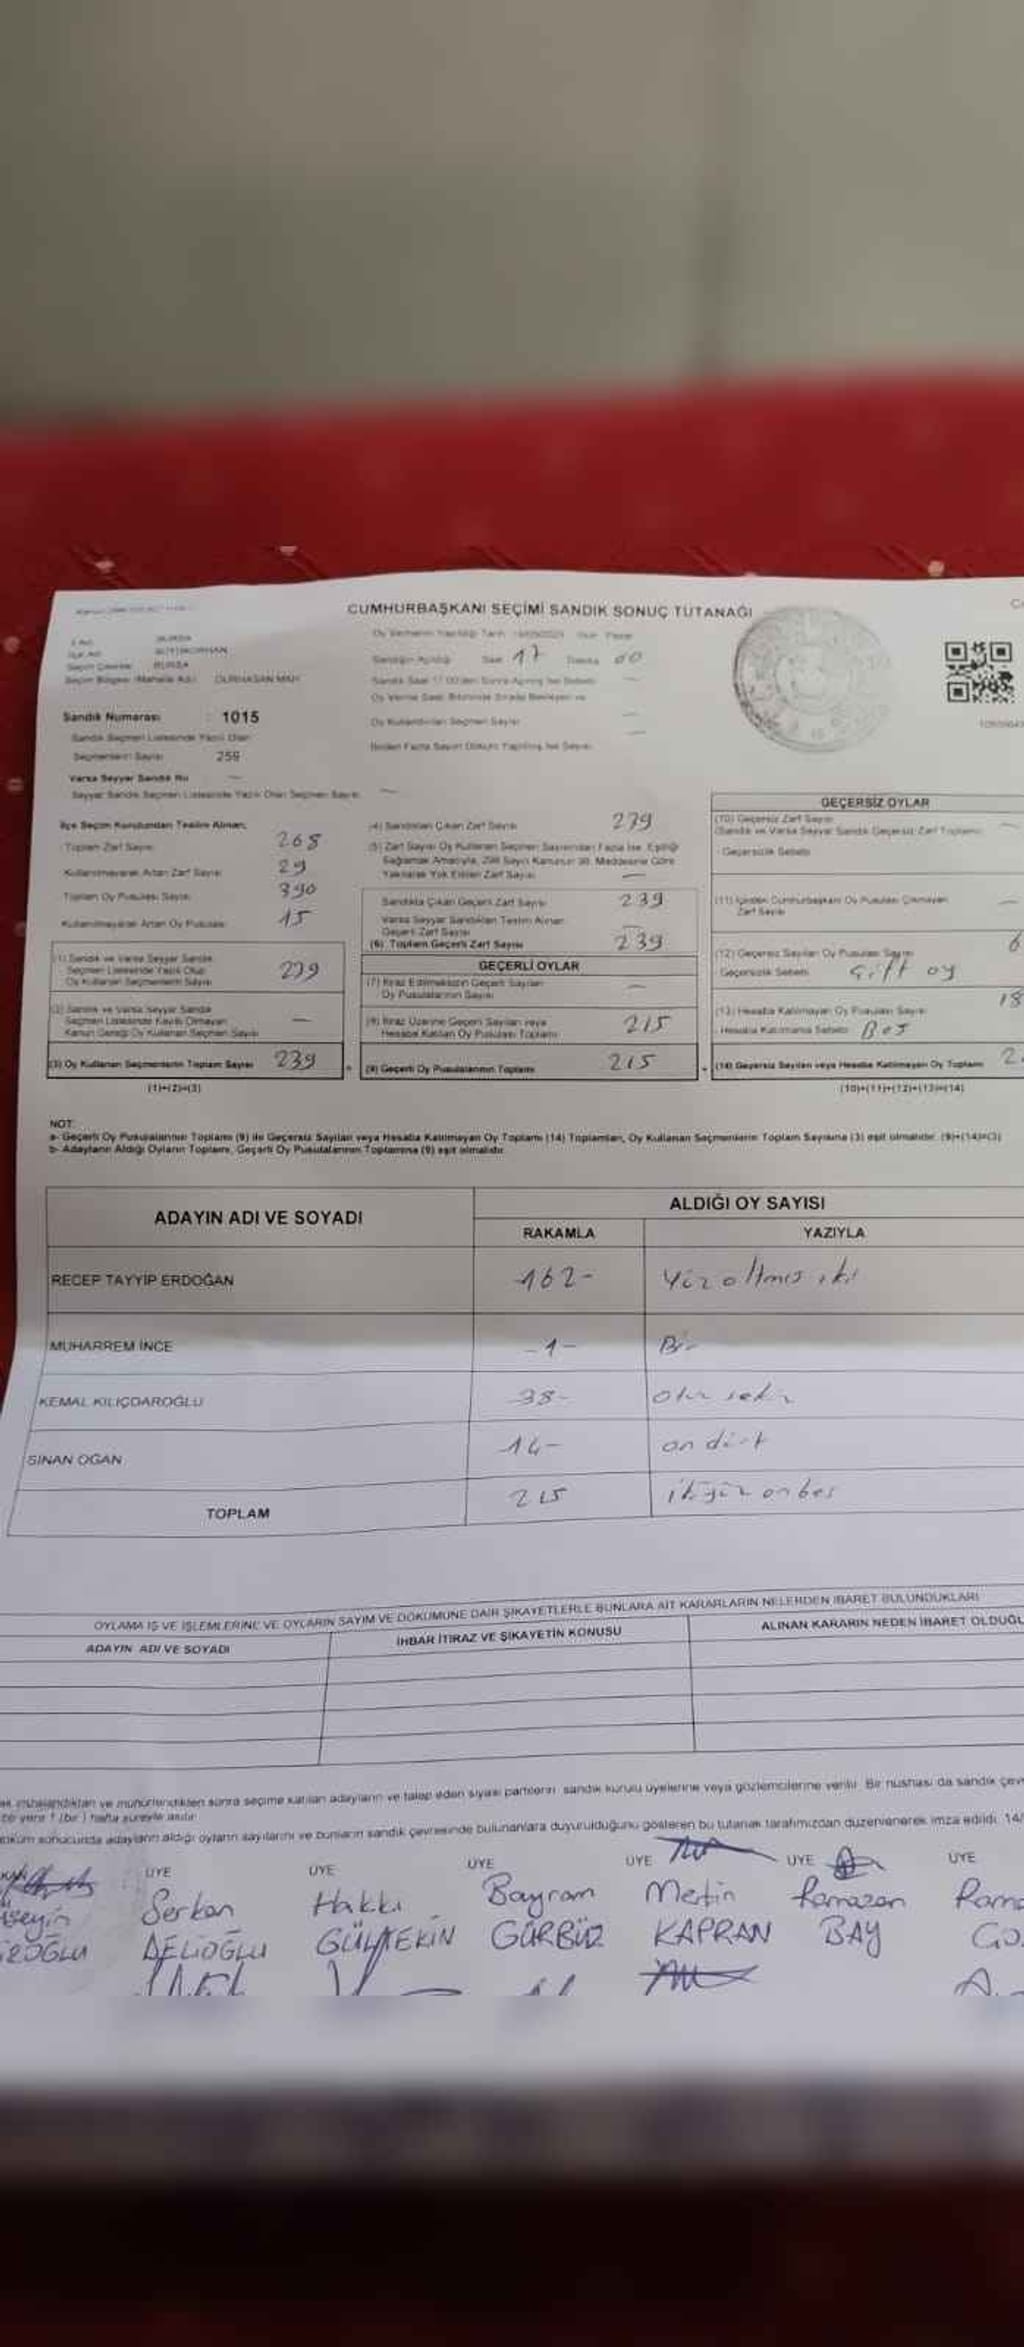 CUMHURBAŞKANI SEÇİMİ SANDIK SONUÇ TUTANAĞI
İl Adı BURSA
İlçe Adı BÜYÜKORHAN
Seçim Çevresi BURSA
Seçim Bölgesi (Mahalle Adı) DURHASAN MAH
Sandık Numarası : 1015
Sandık Seçmen Listesinde Yazılı Olan
Seçmenlerin Sayısı 259
Varsa Seyyar Sandık No —
Seyyar Sandık Seçmen Listesinde Yazılı Olan Seçmen Sayısı —
Oy Vermenin Yapıldığı Tarih Pazar
Sandığın Açıldığı Saat 17 Dakika 00
Oy Kullandırılan Seçmen Sayısı —
İlçe Seçim Kurulundan Teslim Alınan;
Toplam Zarf Sayısı 268
Kullanılmayarak Artan Zarf Sayısı 29
Toplam Oy Pusulası Sayısı 390
Kullanılmayarak Artan Oy Pusulası 15
(1) Sandık ve Varsa Seyyar Sandık
Seçmen Listesinde Yazılı Olup
Oy Kullanan Seçmenlerin Sayısı 239
(2) Sandık ve Varsa Seyyar Sandık
Seçmen Listesinde Kayıtlı Olmayan
Kanun Gereği Oy Kullanan Seçmen Sayısı —
(3) Oy Kullanan Seçmenlerin Toplam Sayısı 239
(1)+(2)=(3)
(4) Sandıktan Çıkan Zarf Sayısı 239
(5) Zarf Sayısı Oy Kullanan Seçmen Sayısından Fazla İse, Eşitliği
Sağlamak Amacıyla, 298 Sayılı Kanunun 98. Maddesine Göre
Yakılarak Yok Edilen Zarf Sayısı —
Sandıkta Çıkan Geçerli Zarf Sayısı 239
Varsa Seyyar Sandıktan Teslim Alınan
Geçerli Zarf Sayısı —
(6) Toplam Geçerli Zarf Sayısı 239
GEÇERLİ OYLAR
(7) İtiraz Edilmeksizin Geçerli Sayılan
Oy Pusulalarının Sayısı —
(8) İtiraz Üzerine Geçerli Sayılan veya
Hesaba Katılan Oy Pusulası Toplamı 215
(9) Geçerli Oy Pusulalarının Toplamı 215
GEÇERSİZ OYLAR
(10) Geçersiz Zarf Sayısı
(Sandık ve Varsa Seyyar Sandık Geçersiz Zarf Toplamı) —
Geçersizlik Sebebi
(11) İçinden Cumhurbaşkanı Oy Pusulası Çıkmayan
Zarf Sayısı —
(12) Geçersiz Sayılan Oy Pusulası Sayısı 6
Geçersizlik Sebebi Çift oy
(13) Hesaba Katılmayan Oy Pusulası Sayısı 18
Hesaba Katılmama Sebebi Boş
(14) Geçersiz Sayılan veya Hesaba Katılmayan Oy Toplamı 2
(10)+(11)+(12)+(13)=(14)
NOT:
a- Geçerli Oy Pusulalarının Toplamı (9) ile Geçersiz Sayılan veya Hesaba Katılmayan Oy Toplamı (14) Toplamları, Oy Kullanan Seçmenlerin Toplam Sayısına (3) eşit olmalıdır. (9)+(14)=(3)
b- Adayların Aldığı Oyların Toplamı, Geçerli Oy Pusulalarının Toplamına (9) eşit olmalıdır.
ADAYIN ADI VE SOYADI
ALDIĞI OY SAYISI
RAKAMLA YAZIYLA
RECEP TAYYİP ERDOĞAN -162- Yüz altmış iki
MUHARREM İNCE -1- Bir
KEMAL KILIÇDAROĞLU -38- otuz sekiz
SİNAN OĞAN -14- on dört
TOPLAM 215 ikiyüz onbeş
OYLAMA İŞ VE İŞLEMLERİNE VE OYLARIN SAYIM VE DÖKÜMÜNE DAİR ŞİKAYETLERLE BUNLARA AİT KARARLARIN NELERDEN İBARET BULUNDUKLARI
ADAYIN ADI VE SOYADI İHBAR İTİRAZ VE ŞİKAYETİN KONUSU ALINAN KARARIN NEDEN İBARET OLDUĞU
imzalandıktan ve mühürlendikten sonra seçime katılan adayların ve talep eden siyasi partilerin sandık kurulu üyelerine veya gözlemcilerine verilir. Bir nüshası da sandık
bir yere 1 (bir) hafta süreyle asılır
döküm sonucunda adayların aldığı oyların sayılarını ve bunların sandık çevresinde bulunanlara duyurulduğunu gösteren bu tutanak tarafımızdan düzenlenerek imza edildi. 14/
ÜYE ÜYE ÜYE ÜYE ÜYE ÜYE
Serkan Hakkı Bayram Metin Ramazan
DELİOĞLU GÜLTEKİN GÜRBÜZ KAPRAN BAY